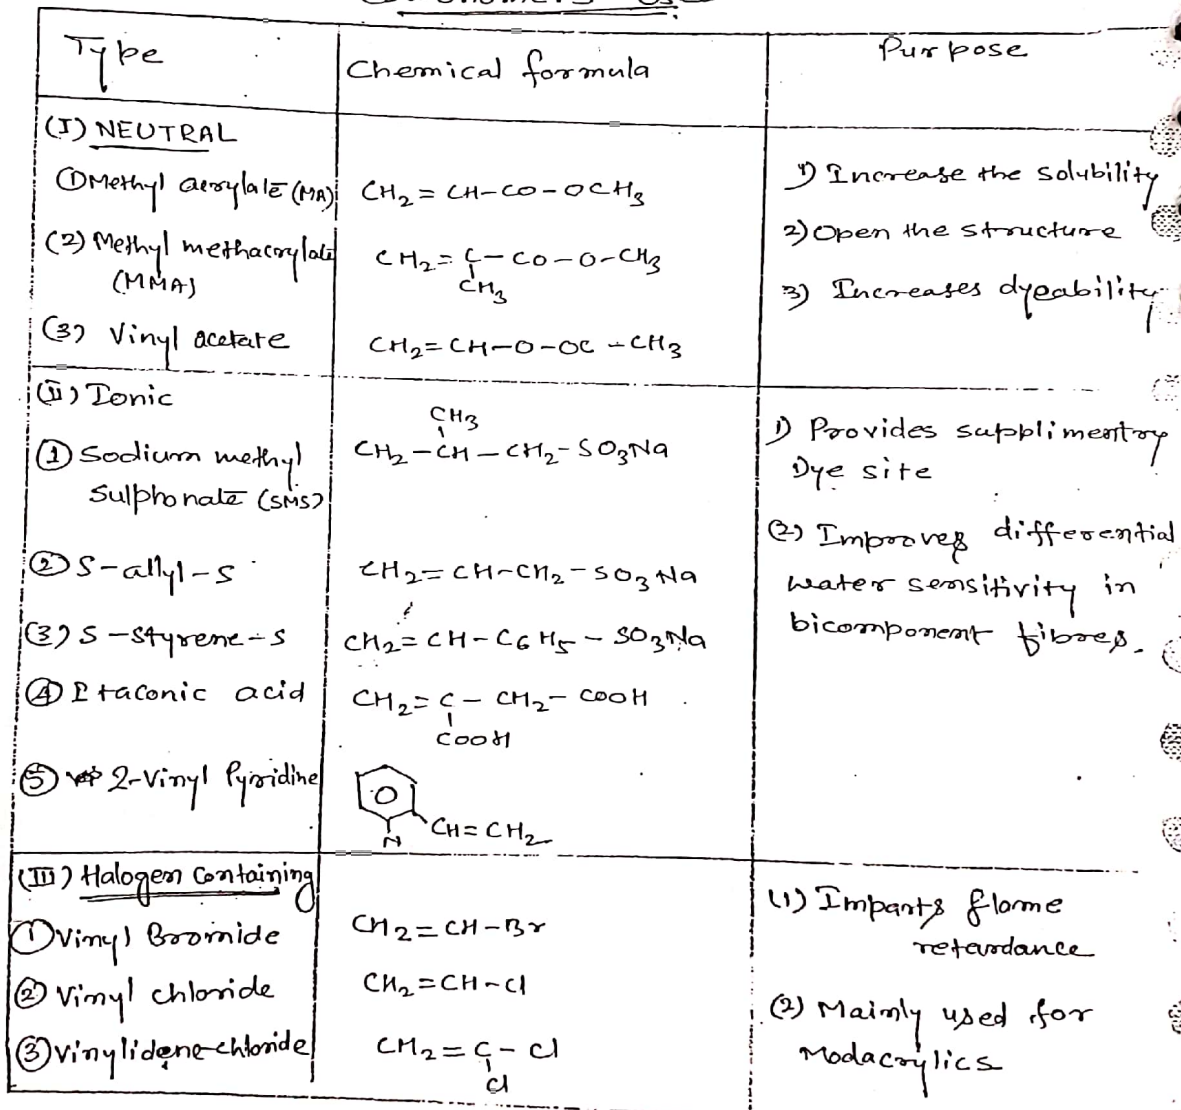 Type
Chemical formula
Purpose
(I) NEUTRAL
① Methyl acrylate (MA)
CH2 = CH-CO-OCH3
1) Increase the solubility
(2) Methyl methacrylate
(MMA)
CH2 = C - CO-O-CH3
CH3
2) Open the structure
3) Increases dyeability
(3) Vinyl acetate
CH2=CH-O-OC-CH3
(II) Ionic
① Sodium methyl
Sulphonate (SMS)
CH3
CH2-CH-CH2-SO3Na
1) Provides supplimentry
Dye site
② S-allyl-S
CH2=CH-CH2-SO3Na
(2) Improves differential
water sensitivity in
bicomponent fibres.
(3) S-Styrene-S
CH2=CH-C6H5-SO3Na
④ Itaconic acid
CH2=C-CH2-COOH
COOH
⑤ 2-Vinyl Pyridine
N
CH=CH2
(III) Halogen Containing
① Vinyl Bromide
CH2=CH-Br
(1) Imparts flame
retardance
② Vinyl chloride
CH2=CH-Cl
(2) Mainly used for
Modacrylics
③ Vinylidene chloride
CH2=C-Cl
Cl